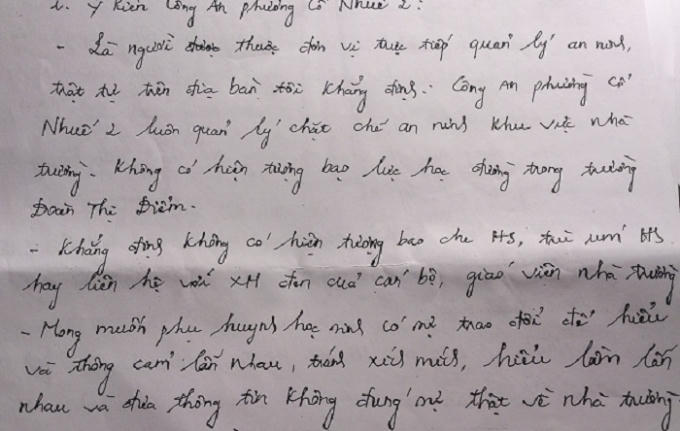 2. Ý kiến Công An phường Cổ Nhuế 2:
- Là người được thuộc đơn vị trực tiếp quản lý an ninh,
trật tự trên địa bàn tôi khẳng định: Công An phường Cổ
Nhuế 2 luôn quản lý chặt chẽ an ninh khu vực nhà
trường. Không có hiện tượng bạo lực học đường trong trường
Đoàn Thị Điểm.
- Khẳng định không có hiện tượng bao che HS, trù úm HS
hay liên hệ với XH đen của cán bộ, giáo viên nhà trường
- Mong muốn phụ huynh học sinh có sự trao đổi để hiểu
và thông cảm lẫn nhau, tránh xích mích, hiểu lầm lẫn
nhau và đưa thông tin không đúng sự thật về nhà trường